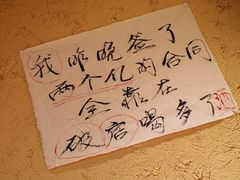 我昨晚签了
两个亿的合同
全靠在
破店喝多了